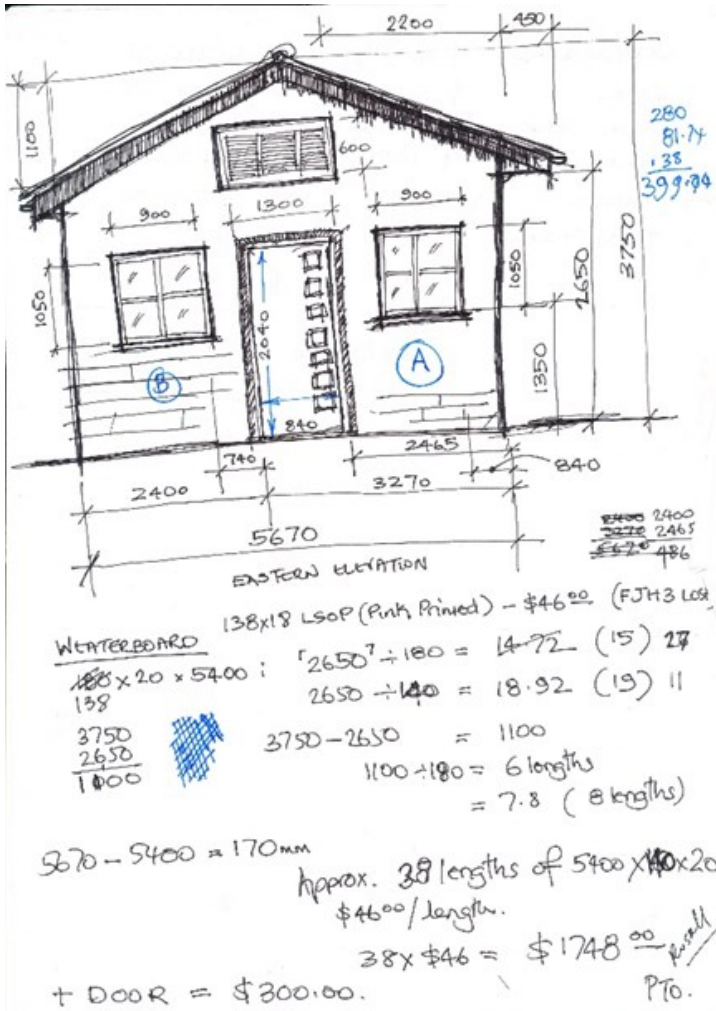 2200
450
1100
280
81.74
.38
399.74
600
900
1300
900
1050
2040
1050
2650
3750
1350
B
A
840
740
2465
840
2400
3270
5670
2400
2465
486
EASTERN ELEVATION
138x18 LSOP (Pink Primed) - $46.00 (FJH3 LOSP
WEATERBOARD
x 20 x 5400 : "2650" ÷ 180 = 14.72 (15) 27
138
2650 ÷ 140 = 18.92 (19) 11
3750
2650
1100
3750 - 2650 = 1100
1100 ÷ 180 = 6 lengths
= 7.8 (8 lengths)
5670 - 5400 = 170mm
Approx. 38 lengths of 5400 x 140 x 20
$46.00/length.
38 x $46 = $1748.00
+ DOOR = $300.00.
PTO.